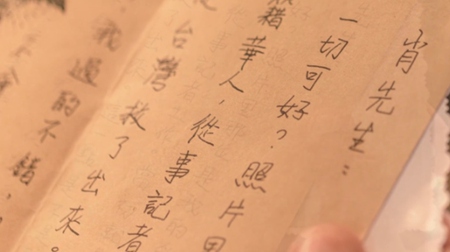 肖先生：
一切可好？照片
籍華人，從事記者
台灣救了出來。
我過的不錯，